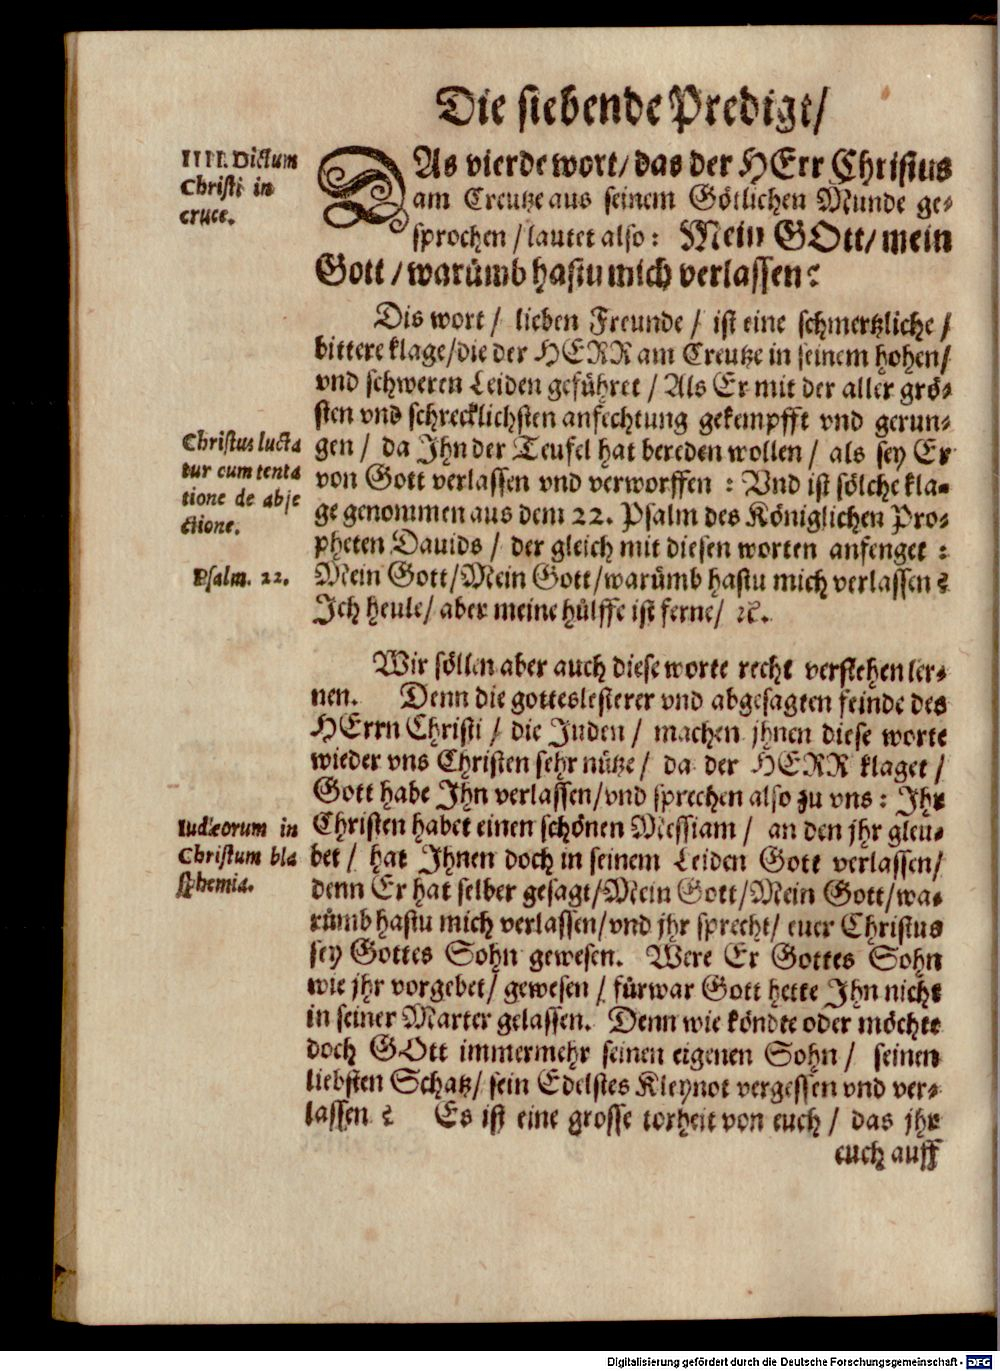 Die siebende Predigt/
IIII. Dictum
Christi in
cruce.
DAs vierde wort/ das der HErr Christus
am Creutze aus seinem Götlichen Munde ge-
sprochen / lautet also: Mein GOtt/ mein
Gott / warümb hastu mich verlassen?
Dis wort / lieben Freunde / ist eine schmertzliche /
bittere klage/die der HERR am Creutze in seinem hohen/
vnd schweren Leiden geführet / Als Er mit der aller grö-
sten vnd schrecklichsten anfechtung gekempfft vnd gerun-
Christus lucta
tur cum tenta
tione de abje
ctione.
gen / da Ihn der Teufel hat bereden wollen / als sey Er
von Gott verlassen vnd verworffen : Vnd ist sölche kla-
ge genommen aus dem 22. Psalm des Königlichen Pro-
pheten Dauids / der gleich mit diesen worten anfenget :
Psalm. 22.
Mein Gott/Mein Gott/warümb hastu mich verlassen?
Ich heule/ aber meine hülffe ist ferne/ ꝛc.
Wir söllen aber auch diese worte recht verstehen ler-
nen. Denn die gotteslesterer vnd abgesagten feinde des
HErrn Christi / die Juden / machen jhnen diese worte
wieder vns Christen sehr nütze / da der HERR klaget /
Gott habe Ihn verlassen/vnd sprechen also zu vns : Ihr
Iudæorum in
Christum bla
sphemia.
Christen habet einen schönen Messiam / an den jhr gleu-
bet / hat Ihnen doch in seinem Leiden Gott verlassen/
denn Er hat selber gesagt/Mein Gott/Mein Gott/wa-
rümb hastu mich verlassen/vnd jhr sprecht/ euer Christus
sey Gottes Sohn gewesen. Were Er Gottes Sohn
wie jhr vorgebet/ gewesen / fürwar Gott hette Ihn nicht
in seiner Marter gelassen. Denn wie köndte oder möchte
doch GOtt immermehr seinen eigenen Sohn / seinen
liebsten Schatz/ sein Edelstes Kleynot vergessen vnd ver-
lassen? Es ist eine grosse torheit von euch / das jhr
euch auff
Digitalisierung gefördert durch die Deutsche Forschungsgemeinschaft - DFG